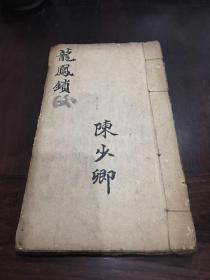 龍鳳鎖
陳少卿